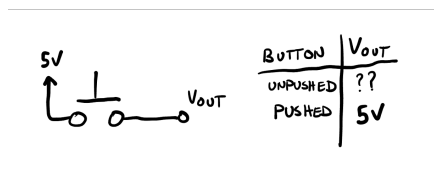 5V
VOUT
BUTTON VOUT
UNPUSHED ??
PUSHED 5V